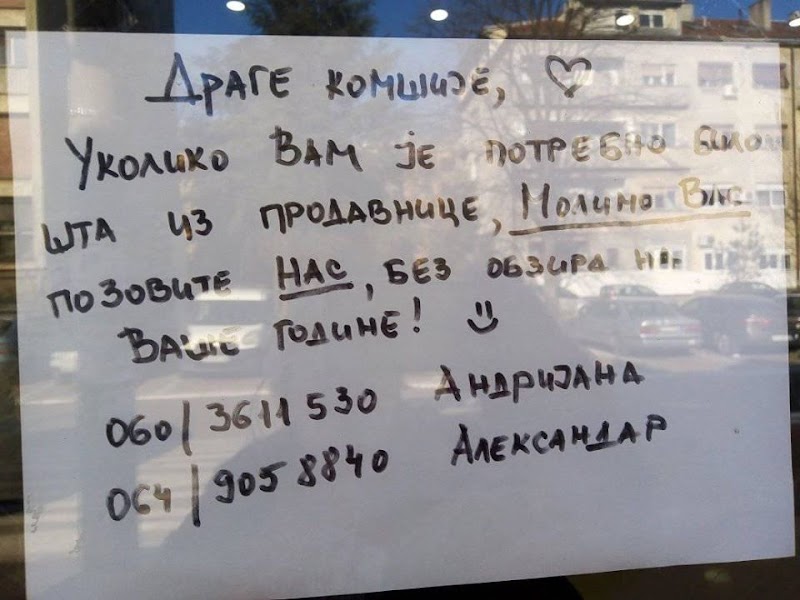 Драге комшије, ♡
Уколико Вам је потребно било
шта из продавнице, Молимо Вас
позовите нас, без обзира на
Ваше године! :)
060/3611530 Андријана
064/9058840 Александар